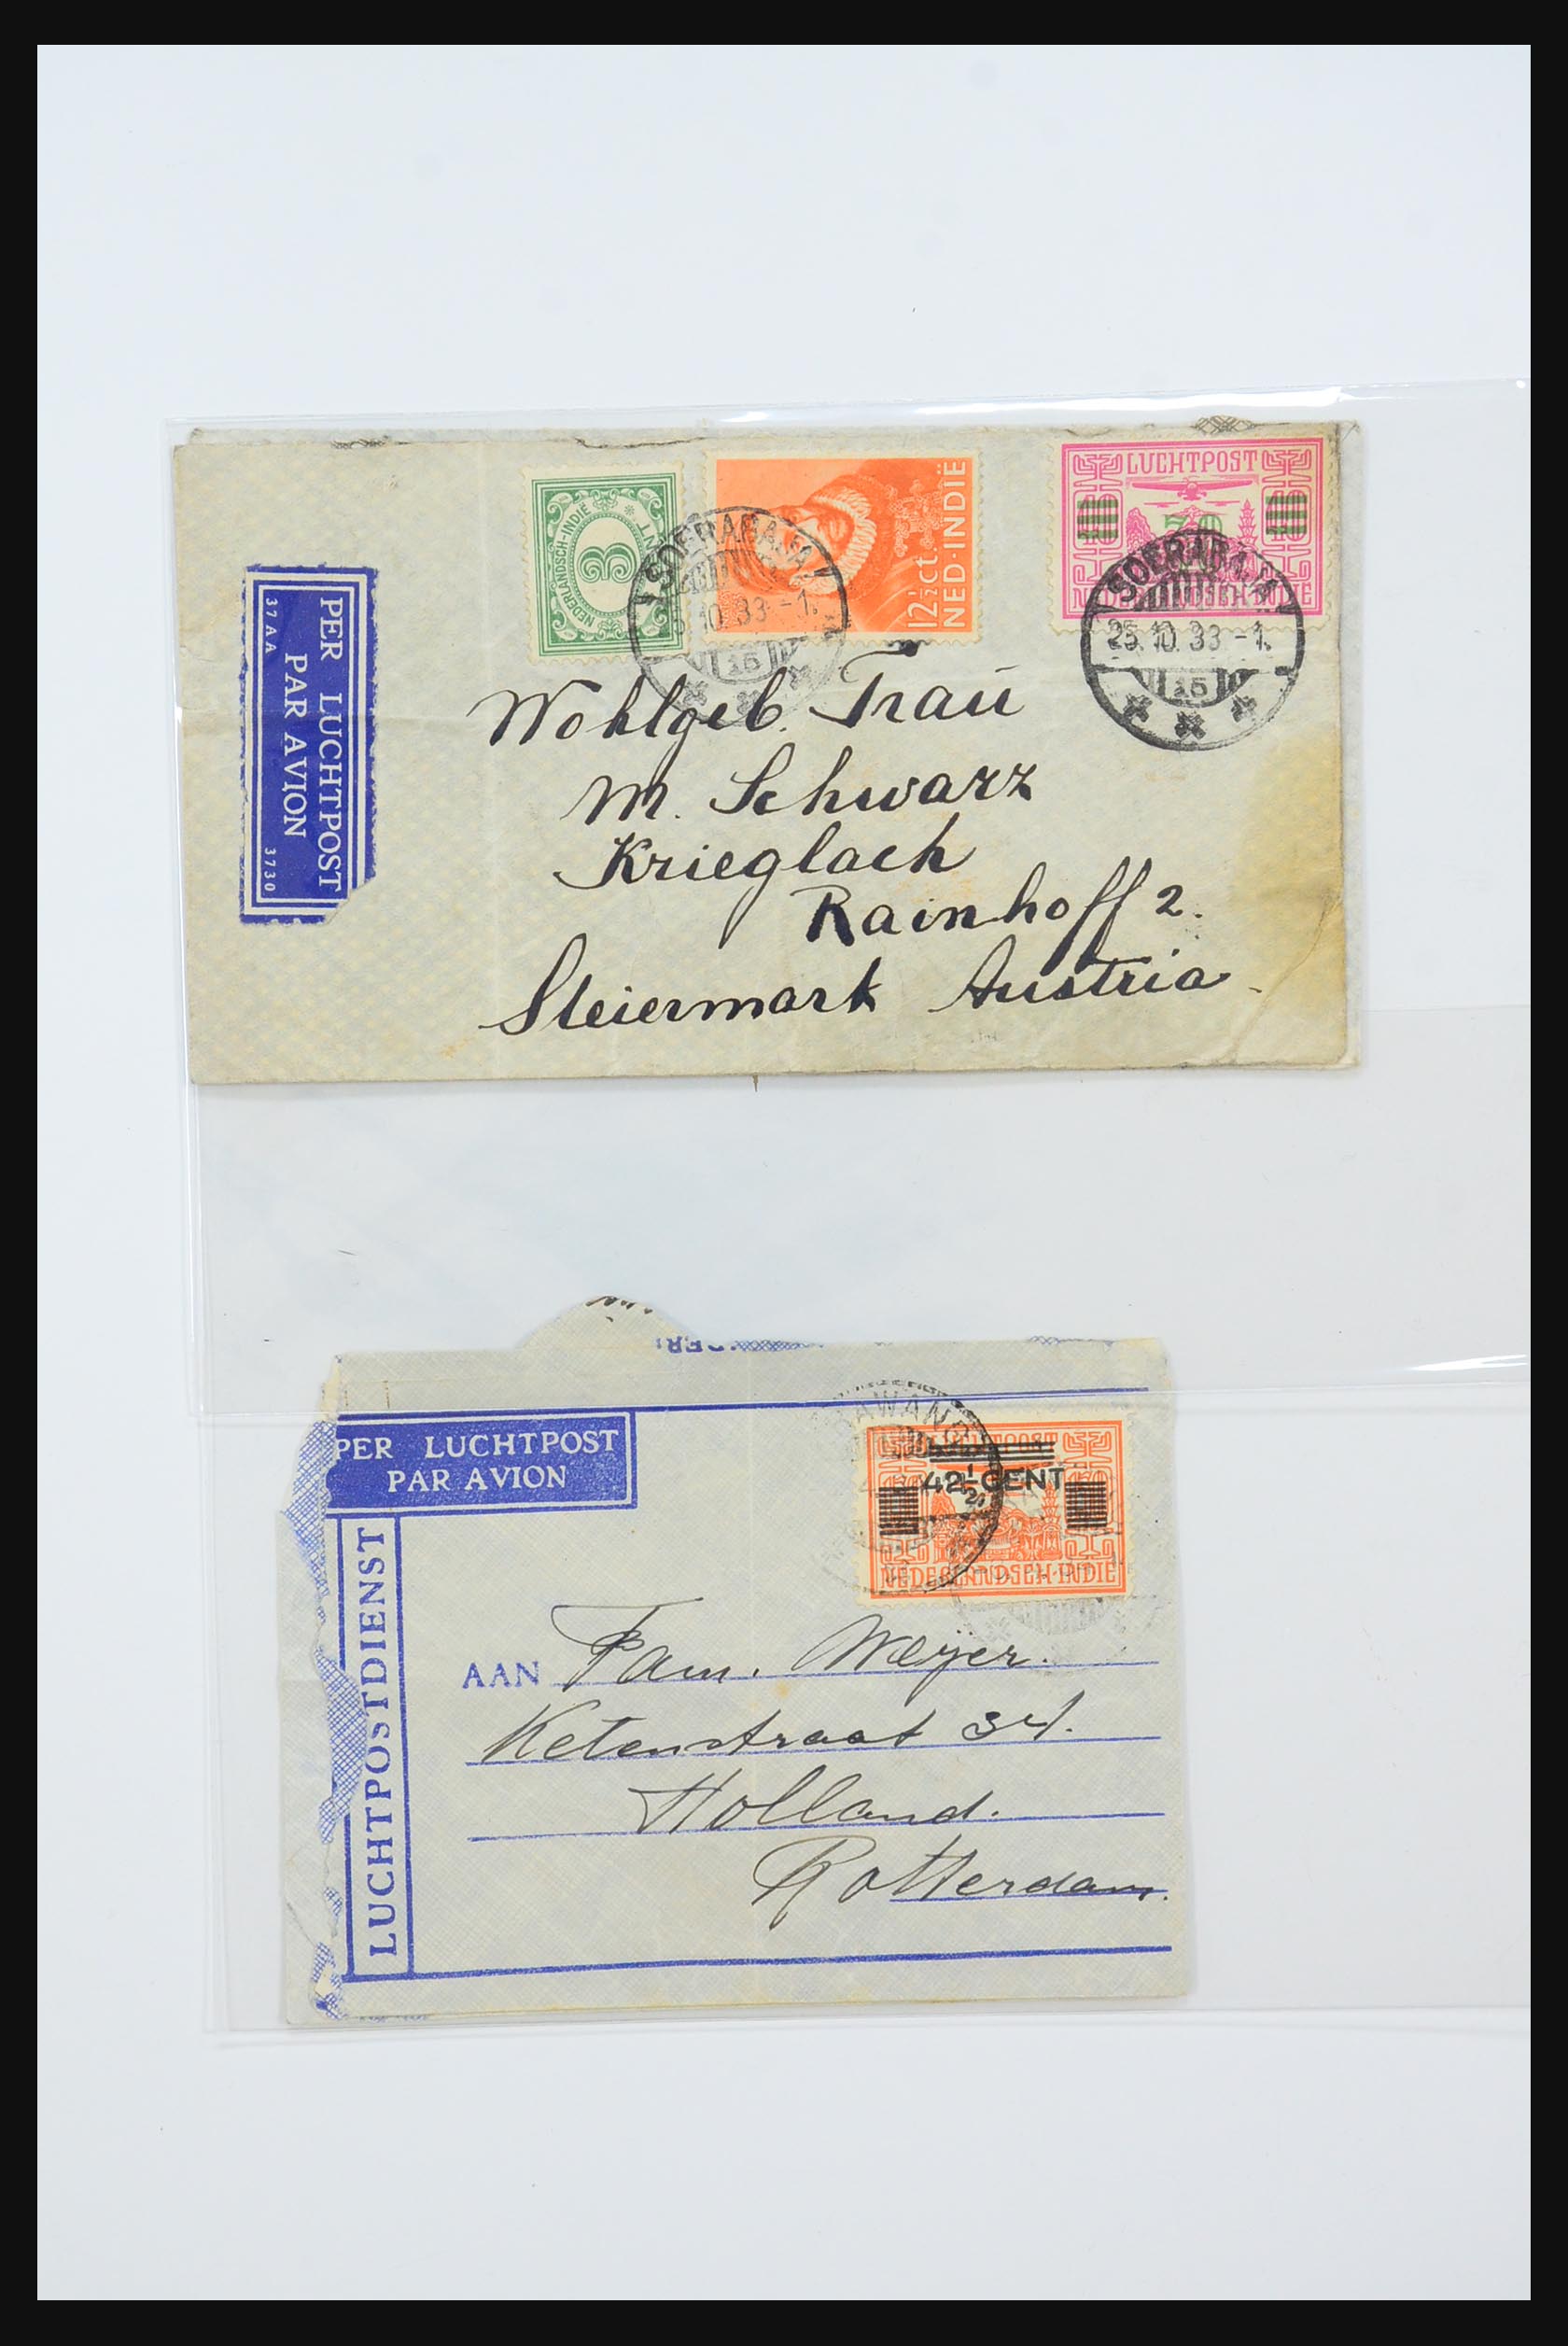 NEDERLANDSCH-INDIË
3
CENT
12½ ct.
NED-INDIË
LUCHTPOST
30
NEDERLANDSCH-INDIE
SOERABAJA
25.10.33-1.
15
SOERABAJA
25.10.33-1.
15
PER LUCHTPOST
PAR AVION
37AA
3730
Wohlgeb. Frau
M. Schwarz
Krieglach
Rainhoff 2.
Steiermark Austria
PER LUCHTPOST
PAR AVION
LUCHTPOSTDIENST
LUCHTPOST
42½ CENT
NEDERLANDSCH-INDIE
AAN Fam. Weyer.
Ketenstraat 34.
Holland.
Rotterdam.